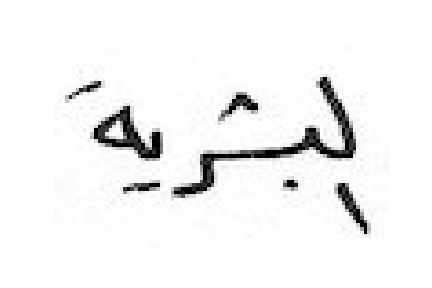 لبشرية